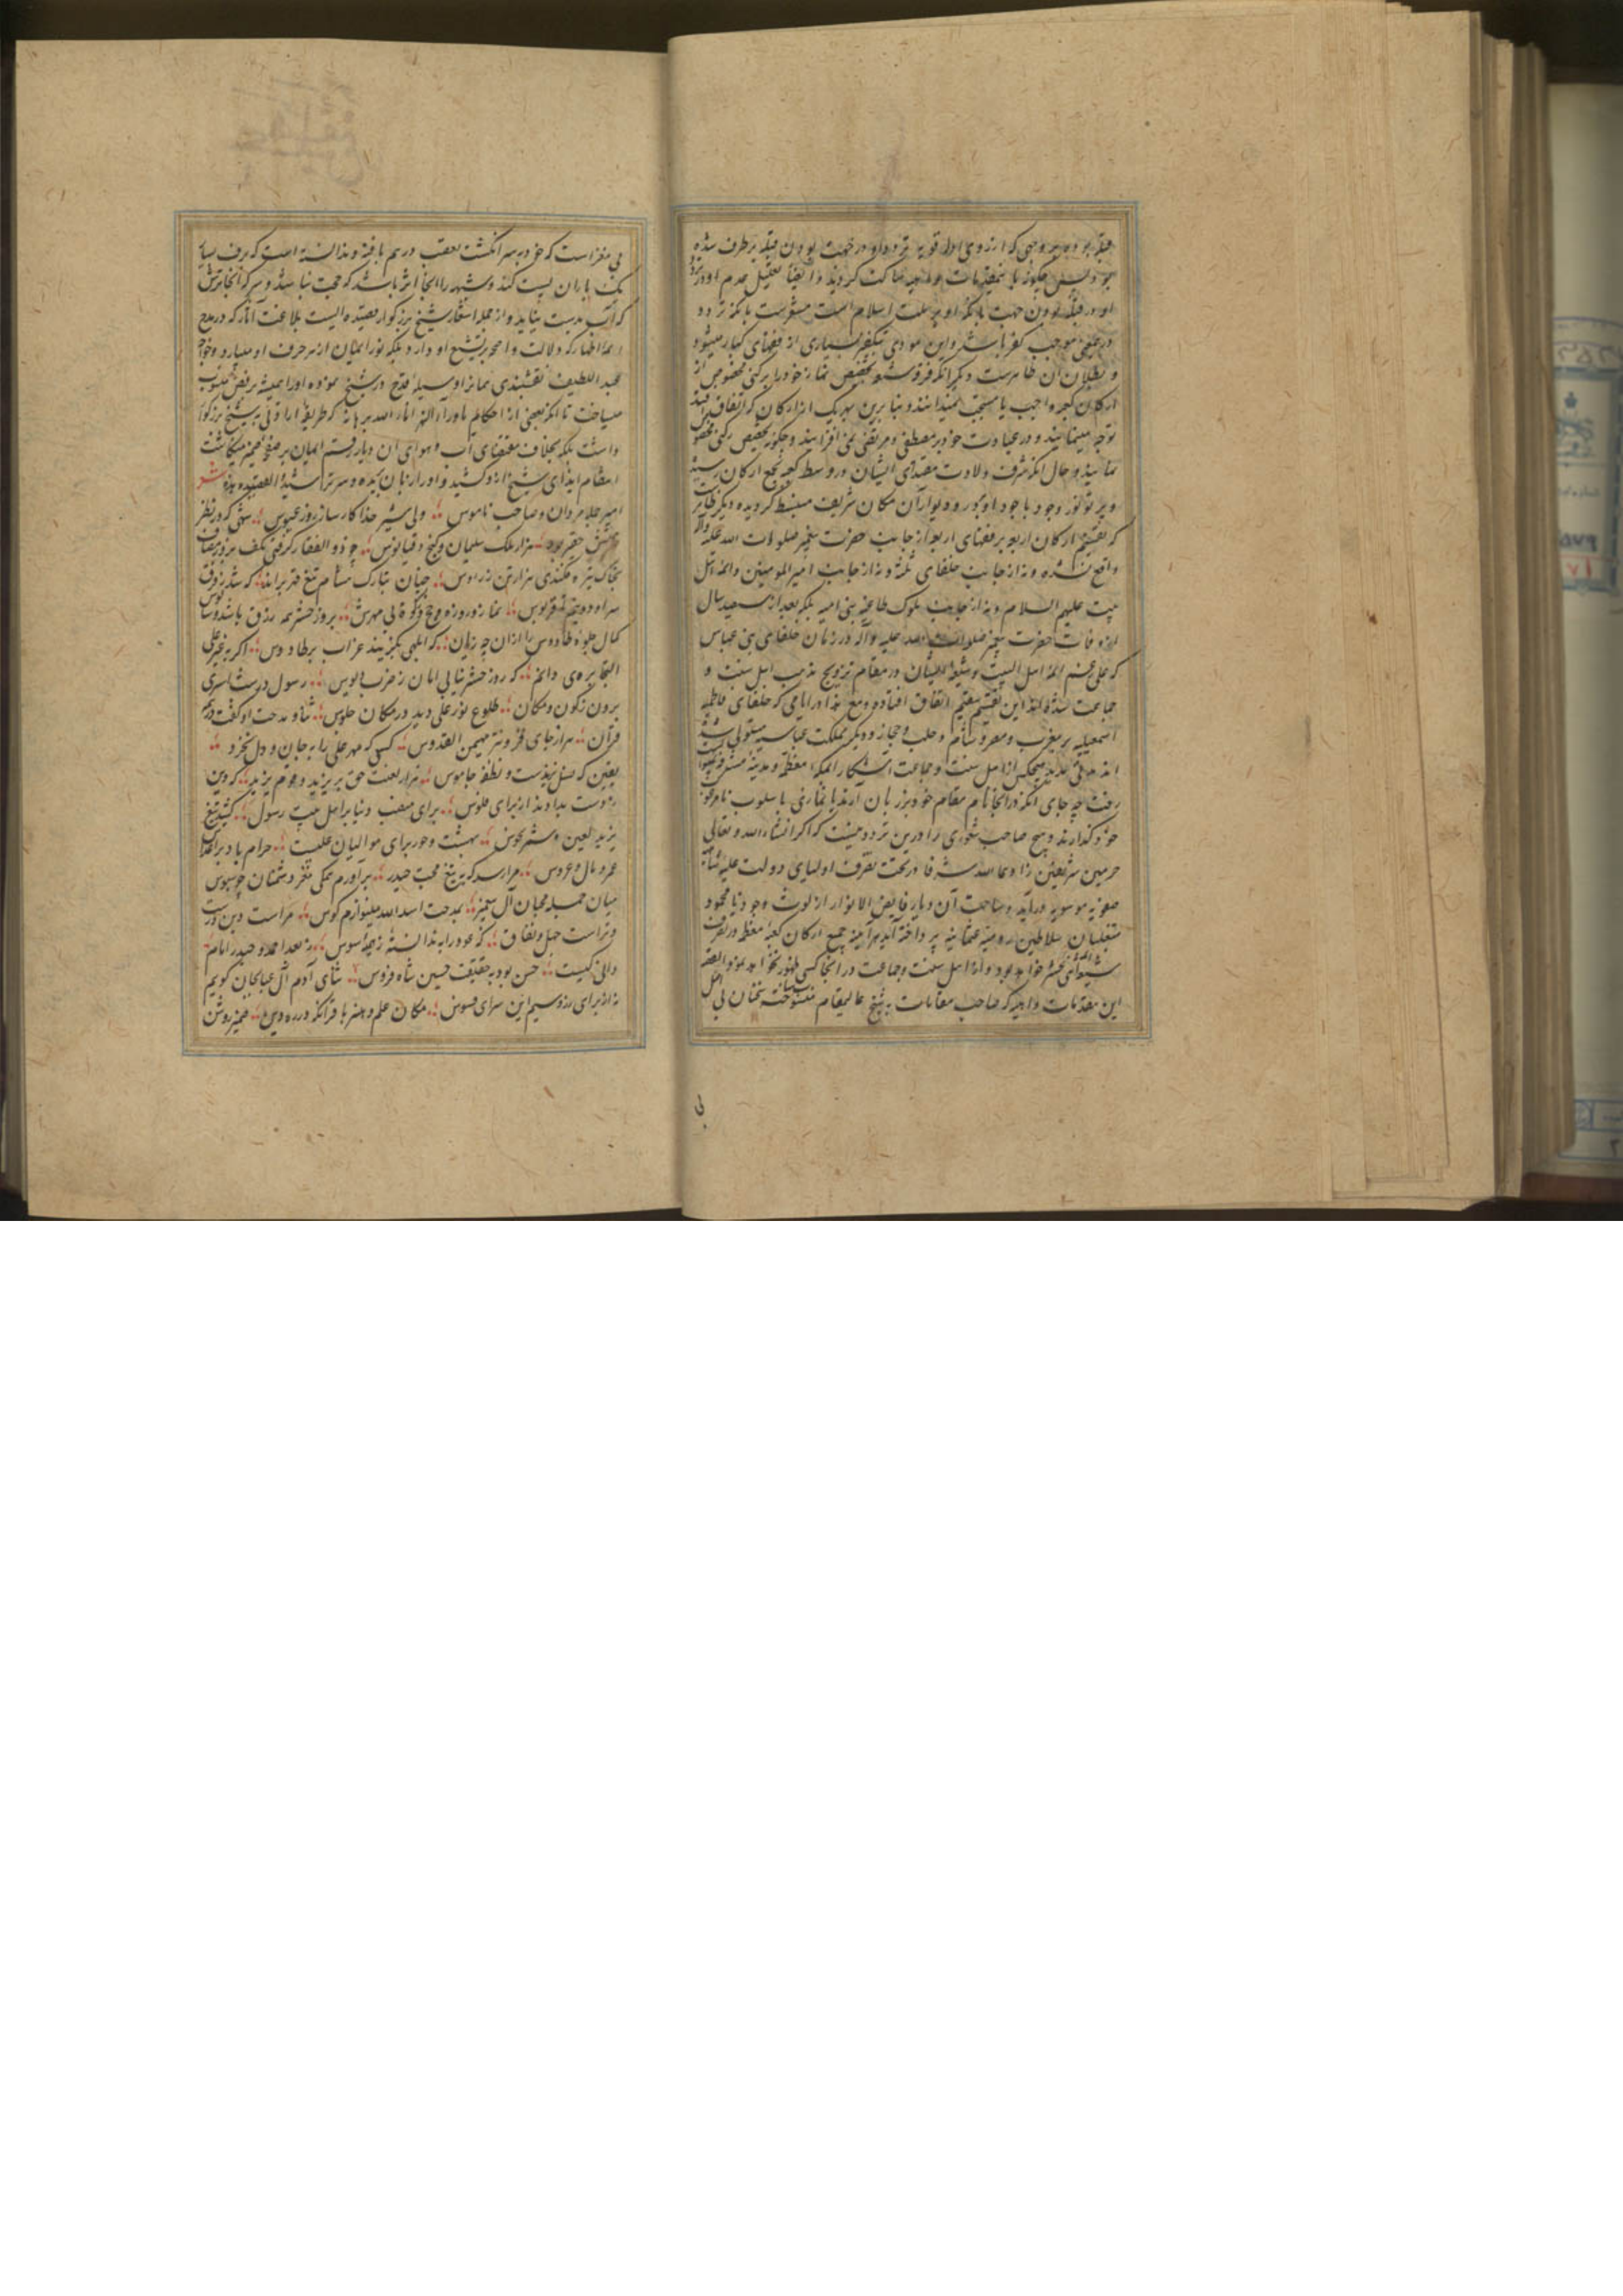 قبله بوده بر وجهی که از روی ادله قویه تردد او در جهت بودن قبله برطرف شده
او در قبله بودن جهت با آنکه او بر ملت اسلام است مستقرست با آنکه تردد
در معنی موجب کفر باشد و این مودی بتکفیر بسیاری از فقهای کبار میشود
و بطلان آن ظاهرست دیگر آنکه تخصیص نماز خود را برکنی مخصوص از
ارکان کعبه واجب یا مستحب نمیدانند و بنابرین بهر یک از ارکان که اتفاق افتد
توجه مینمایند و در عبادت خود بر مصطفی و مرتضی نمی افزایند و چگونه تخصیص رکنی مخصوص
نمایند و حال آنکه شرف ولادت مقتدای ایشان در وسط کعبه بجمیع ارکان رسیده
و پرتو نور وجود با جود او بر در و دیوار آن مکان شریف منبسط گردیده دیگر ظاهرست
که تقسیم ارکان اربعه بر فقهای اربعه از جانب حضرت پیغمبر صلوات الله علیه وآله
واقع نشده و نه از جانب خلفای ثلثه و نه از جانب امیر المومنین و ائمه اهل
بیت علیهم السلام و نه از جانب ملوک طاغیه بنی امیه بلکه بعد از سیصد سال
از وفات حضرت پیغمبر صلوات الله علیه وآله در زمان خلفای بنی عباس
که علی رغم ائمه اهل البیت و شیعه ایشان در مقام ترویج مذهب اهل سنت و
جماعت شده اند این تقسیم سقیم اتفاق افتاده و مع هذا در ایامی که خلفای فاطمیه
اسمعیلیه بر مغرب و مصر و شام و حلب و حجاز و دیگر مملکت عباسیه مستولی شده
اند هیچکس از اهل سنت و جماعت آشکارا بمکه معظمه و مدینه مشرفه
رفت چه جای آنکه در آنجا نام مقام خود بر زبان آرند یا نمازی با سلوب نامرغوب
خود گذارند و هیچ صاحب شعوری را درین تردد نیست که اگر انشاء الله و تعالی
حرمین شریفین زادهما الله شرفا در تحت تصرف اولیای دولت علیه
صفویه موسویه درآید و ساحت آن دیار فایض الانوار از لوث وجود نامحمود
متغلبان سلاطین رومیه عثمانیه پرداخته آید هر آینه جمیع ارکان کعبه معظمه در تصرف
شیعه خواهد بود و از اهل سنت و جماعت در آنجا کسی ظهور نخواهد نمود القصه
این مقدمات واهیه که صاحب مقامات به شیخ عالیمقام منسوب ساخته سخنان بی اصل
بی
بی مغزاست که خود بر سر انگشت تعقب درهم بافته و ندانسته است که برف سیاه
یک باران نیست کند و شهد را آنجا اثر باشد که محبت نباشد و سرکه آنجا ترش
که آب بدست نیاید و از جمله اشعار شیخ بزرگوار قصیده ایست بلاغت آثار که در مدح
ائمه اطهار که دلالت واضح بر تشیع او دارد بلکه نور ایمان از هر حرف او میبارد و خواجه
عبد اللطیف نقشبندی همانرا وسیله قدح در شیخ نموده او را همیشه برفض منسوب
میساخت تا آنکه بعضی از احکام ماوراء النهر انار الله برهانه که طریقه ارادتی به شیخ بزرگوار
داشت بلکه بخلاف مقتضای آب و هوای آن دیار رقم ایمان بر صفحه ضمیر میگاشت
انتقام ایذای شیخ از و کشید و او را زبان بریده و سرتراشید القصیده هذه شعر
امیر جمله مردان و صاحب ناموس ؛ ولی شیر خدا کارساز روز عبوس ؛ شهی که در نظر
همتش حقیر بود ؛ هزار ملک سلیمان و گنج دقیانوس ؛ چو ذو الفقار گرفتی بکف بروز مصاف
بخاک تیره فکندی هزار تن ز رؤس ؛ چنان بتارک مسام تیغ قهر براند ؛ که شد ز فرق
سر او دو نیم تا قربوس ؛ نماز و روزه و حج و زکوة بی مهرش ؛ بروز حشر همه رزق باشد و سالوس
کمال جلوه طاووس را از آن چه زیان ؛ که ابلهی بگزیند غراب بر طاووس ؛ اگر به غیر علی
التجا بری دانم ؛ که روز حشر نیابی امان ز ضرب دبوس ؛ رسول در شب اسری
برون ز کون و مکان ؛ طلوع نور علی دید در مکان جلوس ؛ ثنا و مدحت او گفت در همه
قرآن ؛ هزار جای فزونتر مهیمن القدوس ؛ کسی که مهر علی را به جان و دل نخرد ؛
یقین که نسل یزیدست و نطفه جاموس ؛ هزار لعنت حق بر یزید و قوم یزید ؛ که دین
ز دست بدادند از برای فلوس ؛ برای منصب دنیا بر اهل بیت رسول ؛ کشید تیغ
یزید لعین و شمر نحوس ؛ بهشت و حور برای موالیان علیست ؛ حرام باد بر اعداش
عمر و مال و عروس ؛ مرا رسد که به تیغ محبت حیدر ؛ برآورم همگی مغز دشمنان چو سبوس
میان جمله محبان آل پیغمبر ؛ بمدحت اسد الله مینوازم کوس ؛ مراست دین درست
و تراست جهل و نفاق ؛ که عود را به ندانسته ز بیخ سوس ؛ ز بعد احمد و حیدر امام
دانی کیست ؛ حسن بود به حقیقت حسین شاه فروس ؛ ثنای آدم آل عبا بجان گویم
نه از برای زر و سیم این سرای فسوس ؛ مکان علم و هنر باقر آنکه در ره دین ؛ ضمیر روشن